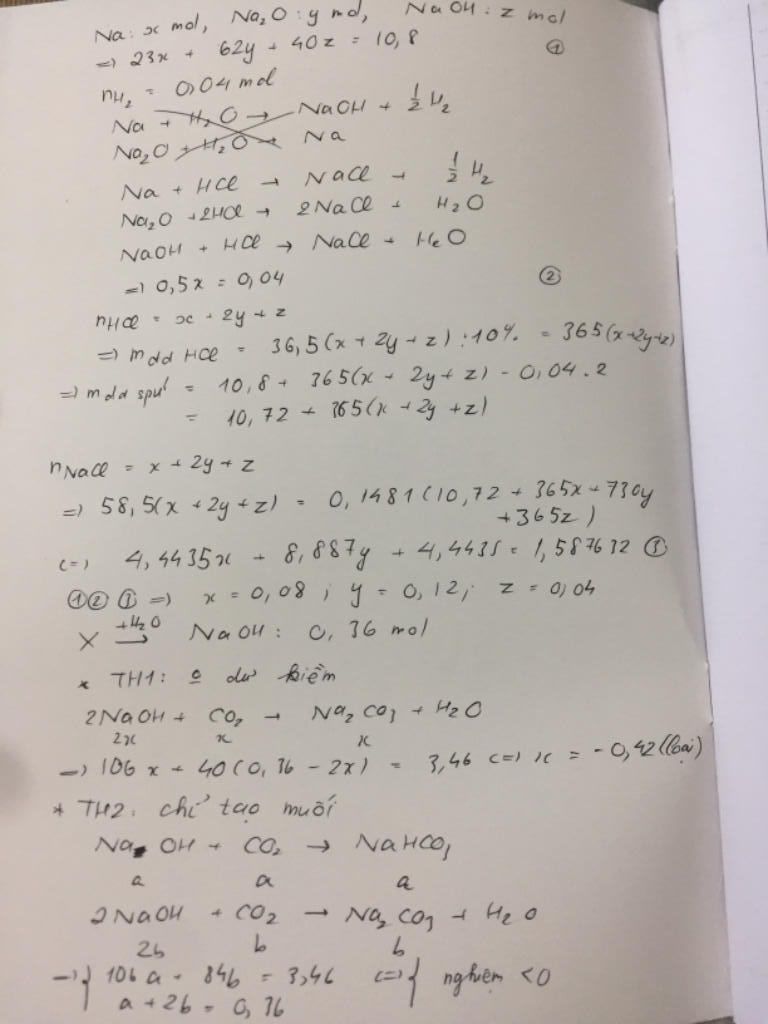 Na: x mol, Na₂O: y mol, NaOH: z mol
=> 23x + 62y + 40z = 10,8 ①
nH₂ = 0,04 mol
Na + H₂O → NaOH + 1/2 H₂
Na₂O + H₂O → Na
Na + HCl → NaCl + 1/2 H₂
Na₂O + 2HCl → 2NaCl + H₂O
NaOH + HCl → NaCl + H₂O
=> 0,5x = 0,04 ②
nHCl = x + 2y + z
=> mdd HCl = 36,5(x + 2y + z) : 10% = 365(x+2y+z)
=> mdd spư = 10,8 + 365(x + 2y + z) - 0,04.2
= 10,72 + 365(x + 2y + z)
nNaCl = x + 2y + z
=> 58,5(x + 2y + z) = 0,1481(10,72 + 365x + 730y
+365z)
<=> 4,4435x + 8,887y + 4,4435 = 1,587632 ③
①②③ => x = 0,08 ; y = 0,12; z = 0,04
X +H₂O → NaOH: 0,36 mol
* TH1: dư kiềm
2NaOH + CO₂ → Na₂CO₃ + H₂O
2x x x
=> 106x + 40(0,36 - 2x) = 3,46 <=> x = -0,42 (loại)
* TH2: chỉ tạo muối
NaOH + CO₂ → NaHCO₃
a a a
2NaOH + CO₂ → Na₂CO₃ + H₂O
2b b b
=> { 106a + 84b = 3,46 <=> { nghiệm <0
a + 2b = 0,36